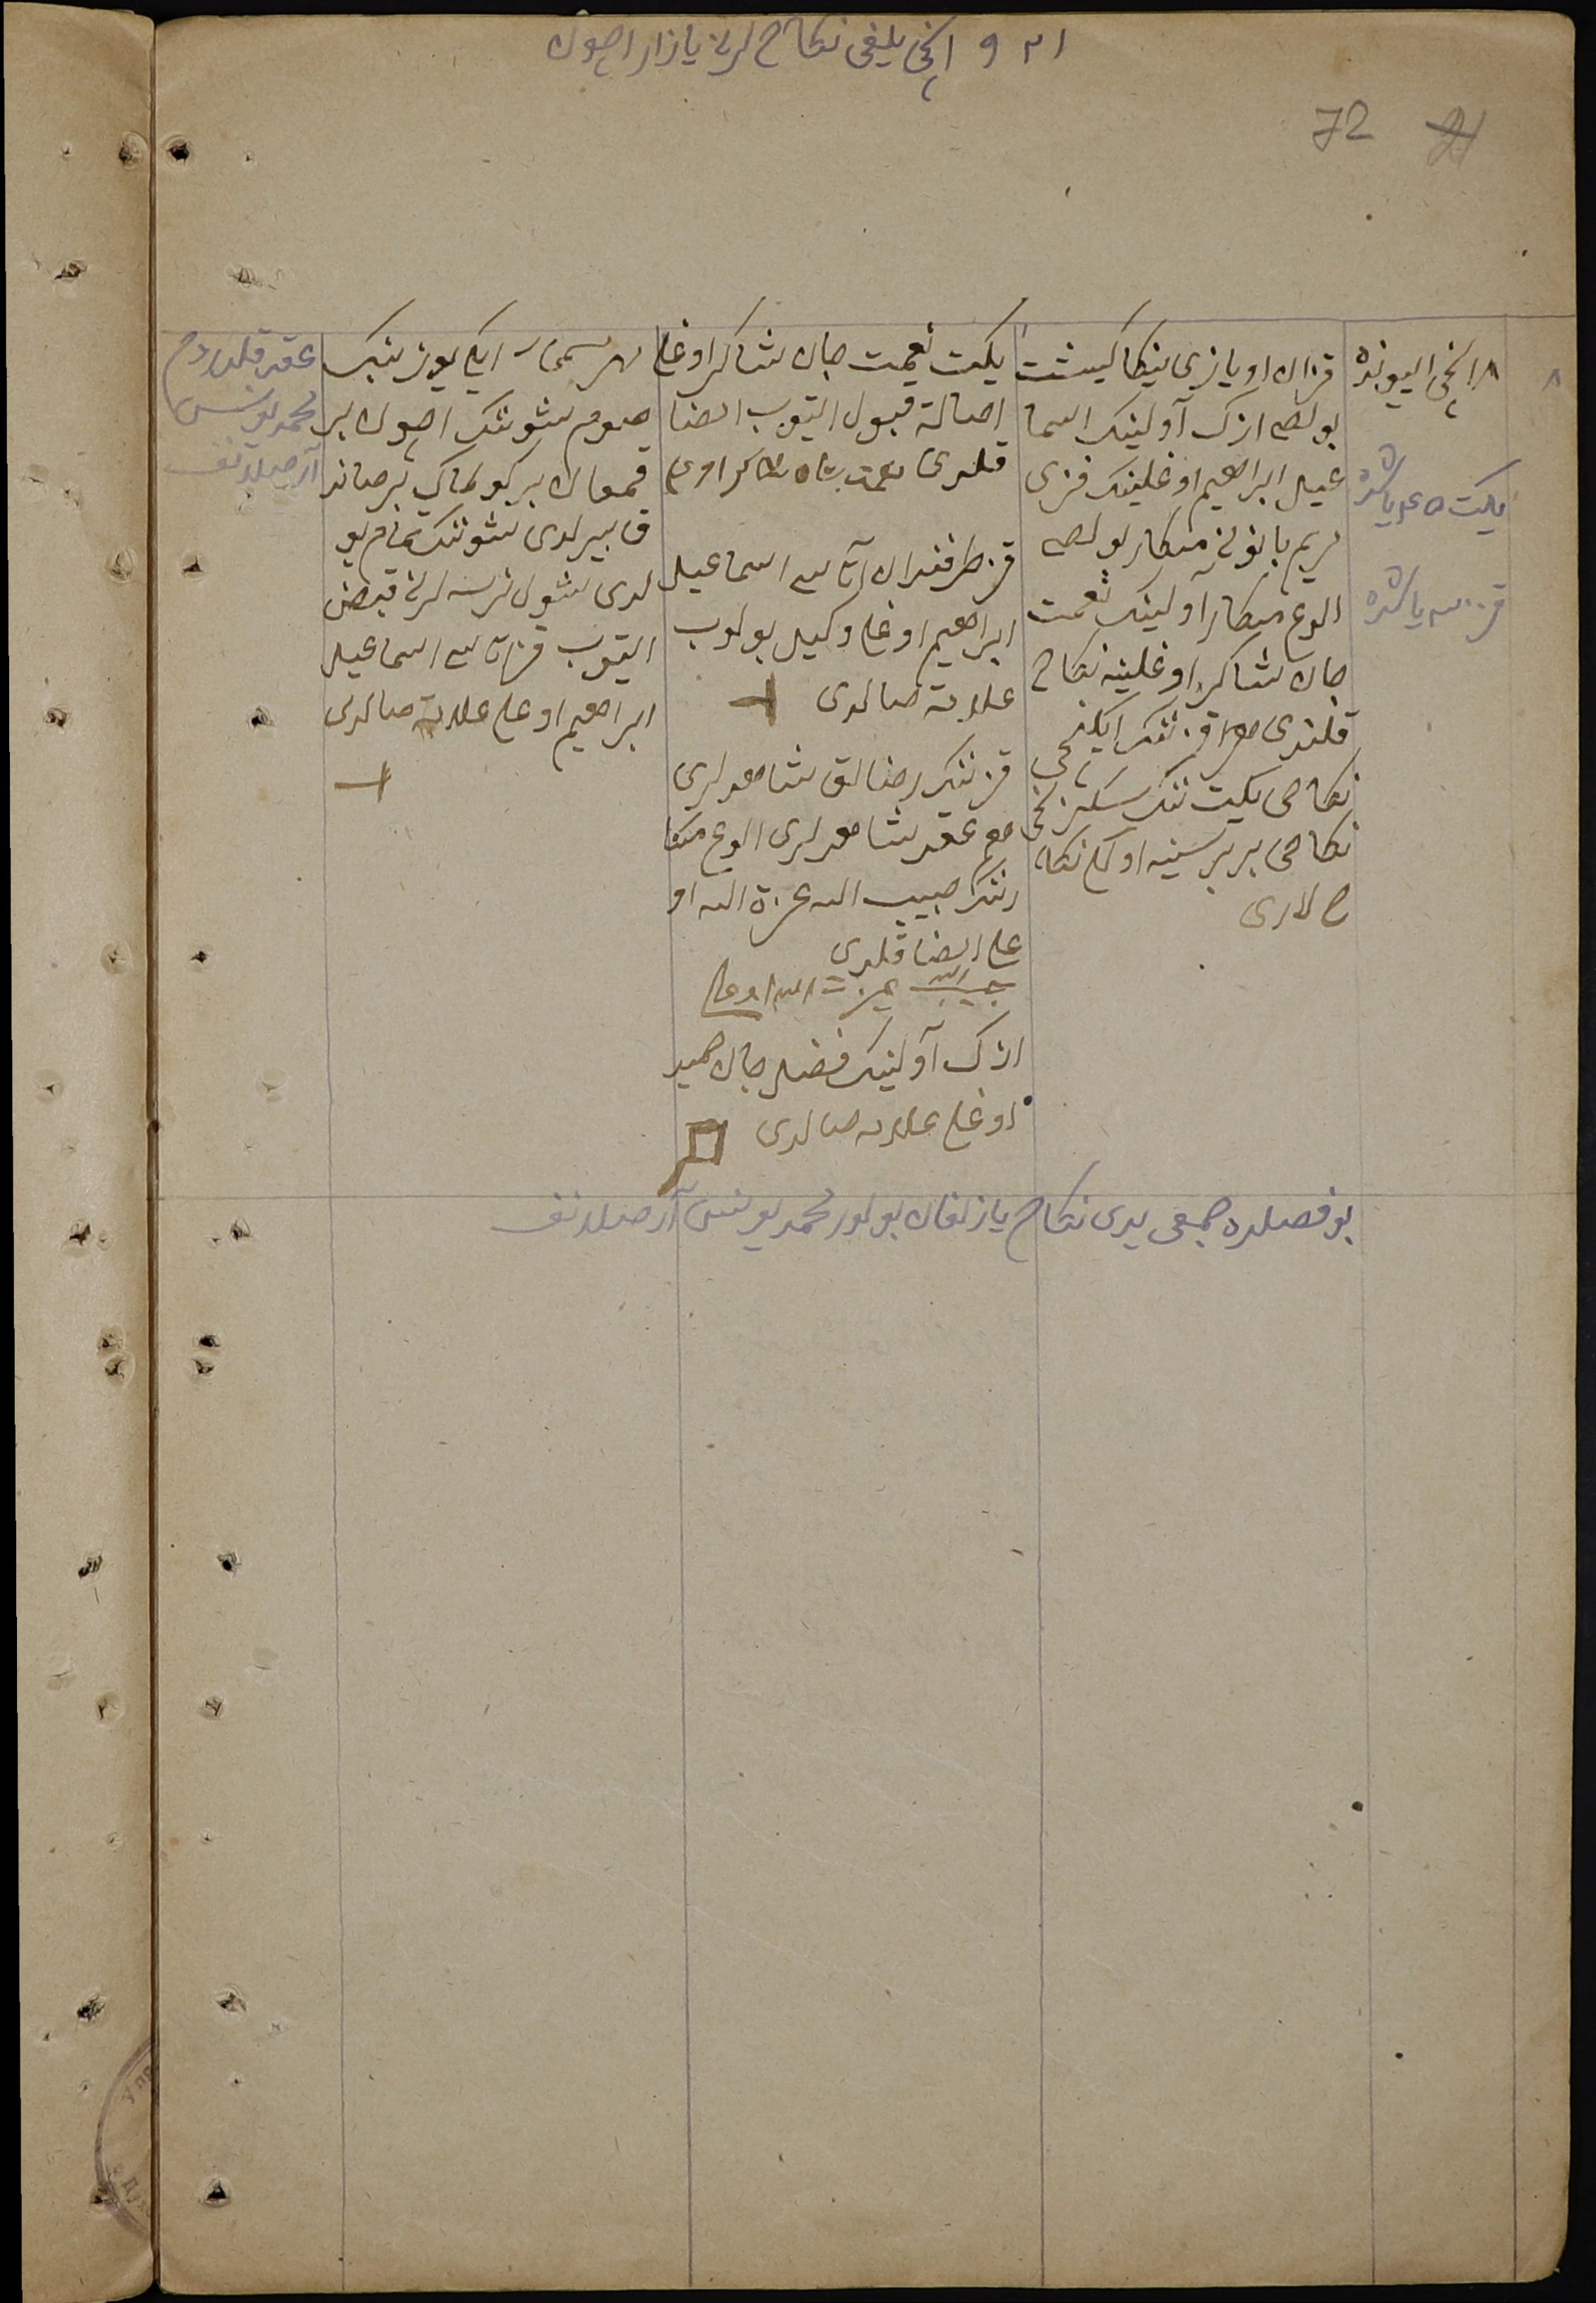 ١٩٢١ نچی یلغی نکاح لرنی یازار اچون
72
٨
٨ نچی الیونده
یکت ٤٥ یاشده
قز ٢٠ یاشده
قزان اویازی ینکا کیشت
بولصی ازک آولینک اسما
عیل ابراهیم اوغلینک قزی
مریم بانونی منکار بولصی
الوغ منکار آولینک نعمت
جان شاکر اوغلینه نکاح
قلندی هم قزننک ایکنچی
نکاحی یکیت ننک سکزنچی
نکاحی بر برسینه اولکی نکا
ح لاری
یکت نعمت جان شاکر اوغلی
اصالة قبول ایتوب امضا
قلدی نعمت جان شاکر اوغلی
قز طرفندان آتاسی اسماعیل
ابراهیم اوغلی وکیل بولوب
علامة صالدی
قزننک رضالق شاهدلری
هم عقد شاهدلری الوغ منکا
رننک حبیب الله عزة الله او
غلی امضا قلدی
حبیب الله عزة الله اوغلی
ازک آولینک فضل جان حمید
اوغلی علامة صالدی
مهر مسمی ایکی یوز بنک
صوم شوننک اچون بر
قمعان بر کولماک بر صاند
ق بیرلدی شوننک تمام بو
لدی شول نرسه لرنی قبض
ایتوب قز آتاسی اسماعیل
ابراهیم اوغلی علامة صالدی
عقد قلدردم
محمد یونس
آرصلانف
بو فصلده جمعی یدی نکاح یازلغان بولور محمد یونس آرصلانف